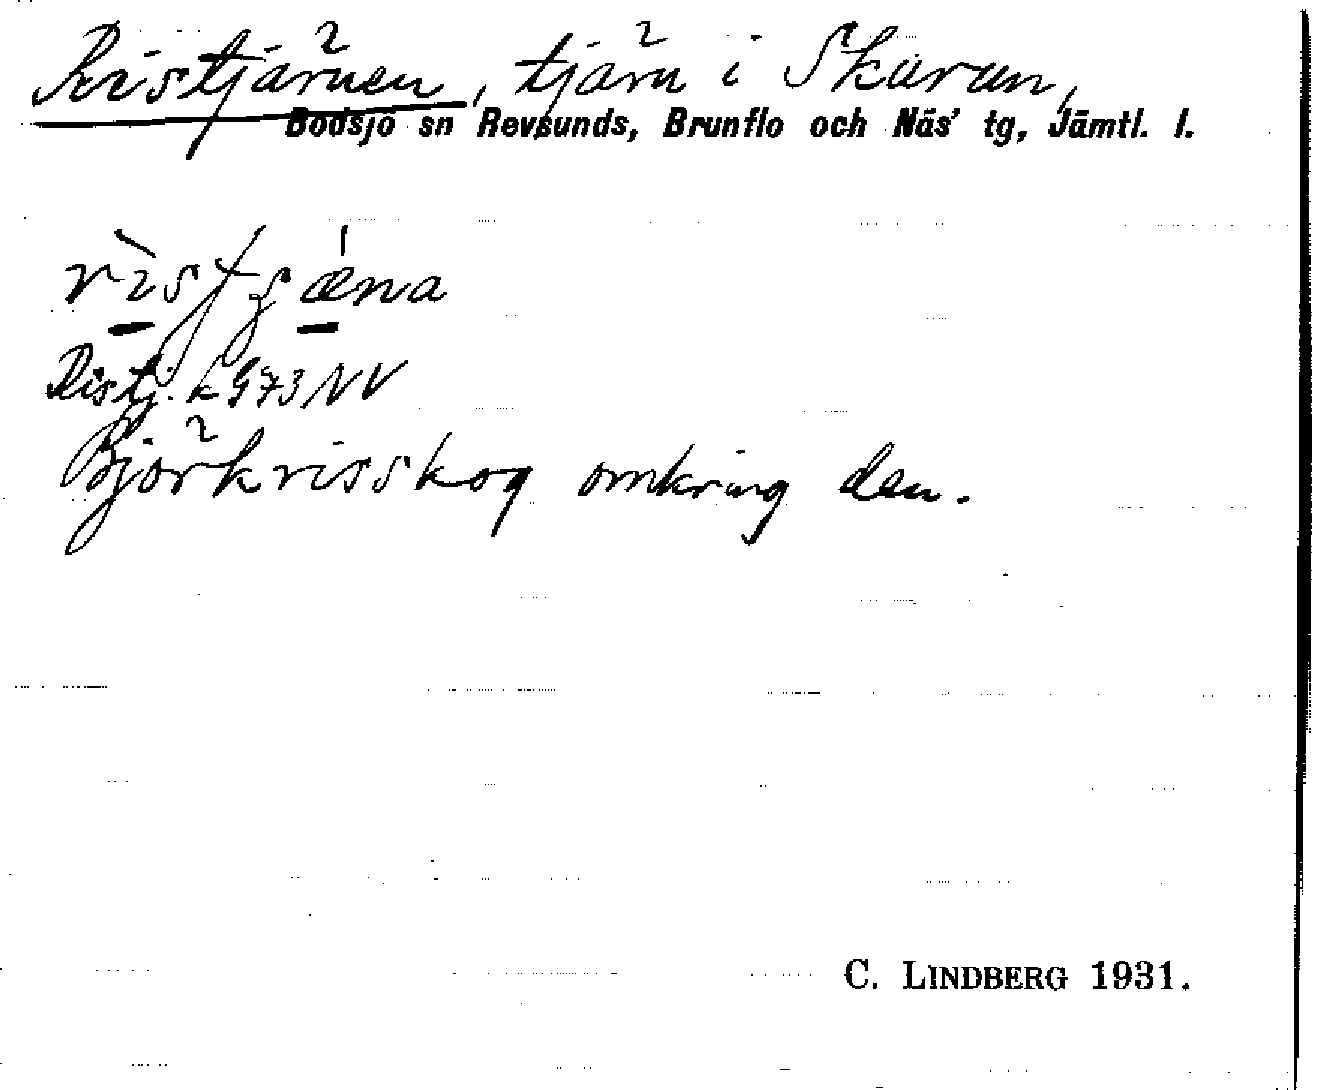 Ristjärnen, tjärn i Skurun,
Bodsjö sn Revsunds, Brunflo och Näs' tg, Jämtl. l.
Ristj. k 973 NV
Björkrisskog omkring den.
C. LINDBERG 1931.